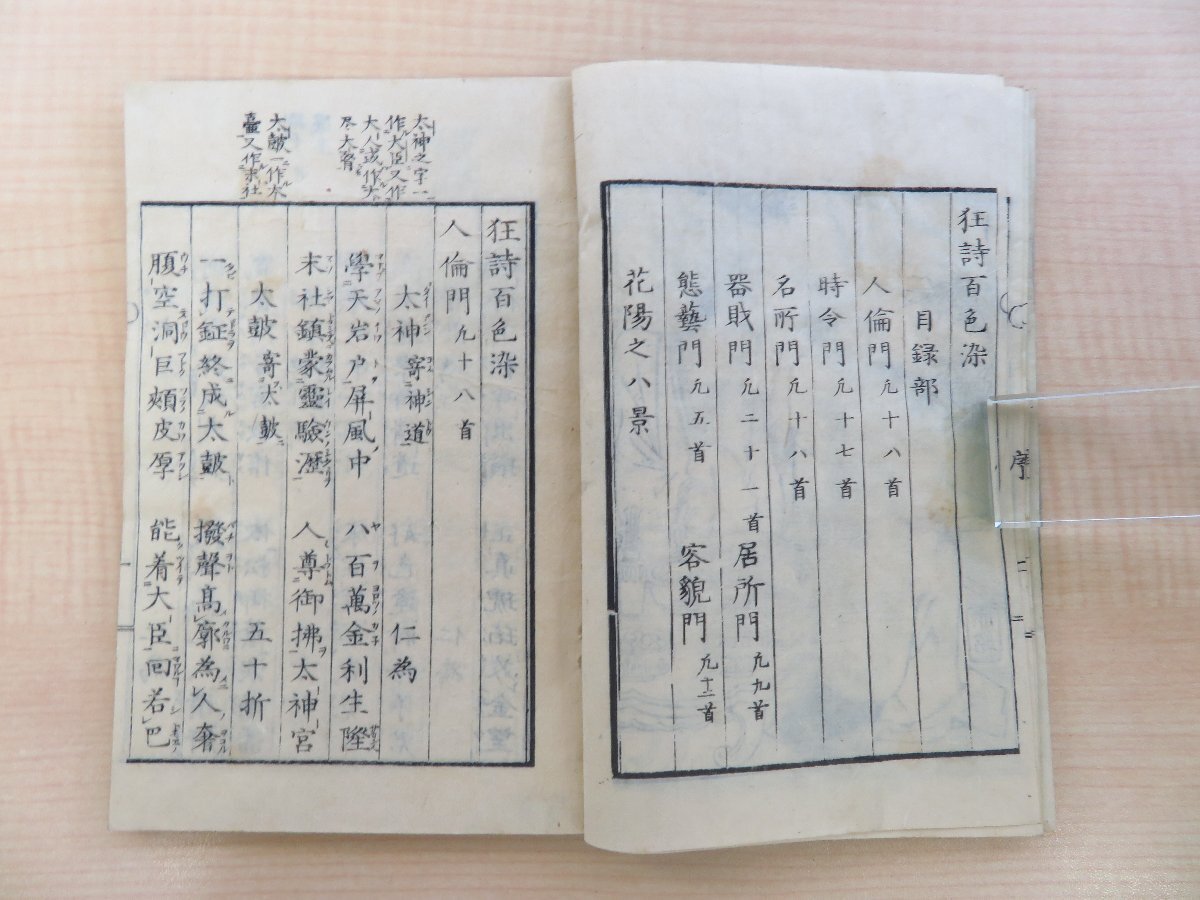 狂詩百色染
目録部
人倫門 凢十八首
時令門 凢十七首
名所門 凢十八首
器財門 凢二十一首 居所門 凢九首
態藝門 凢五首 容貌門 凢十二首
花陽之八景
序
太神之字一
作大臣又作
大人或作大
尽大胥
太皷一作木
又作末社
狂詩百色染
人倫門 凢十八首
太神 寄神道 仁為
學天岩户屏風中 八百萬金利生隆
末社鎮蒙靈驗瀝 人尊御拂太神宮
太皷 寄太皷 五十折
一打鉦終成太皷 撥聲髙廓為人奢
腹空洞巨頰皮厚 能着大臣回若巴